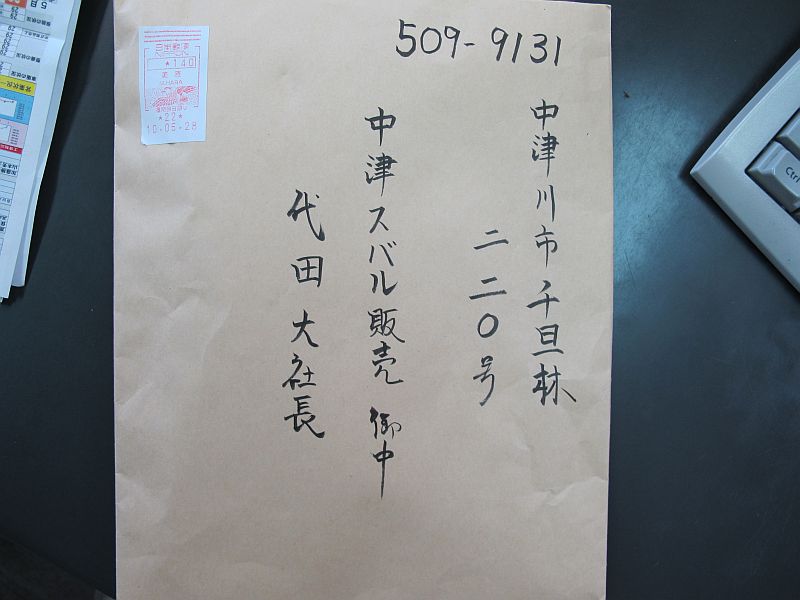 509-9131
中津川市千旦林
二二〇号
中津スバル販売 御中
代田大社長
日本郵便
*140
MIHARA
*22*
10.05.28
Ctrl
5月